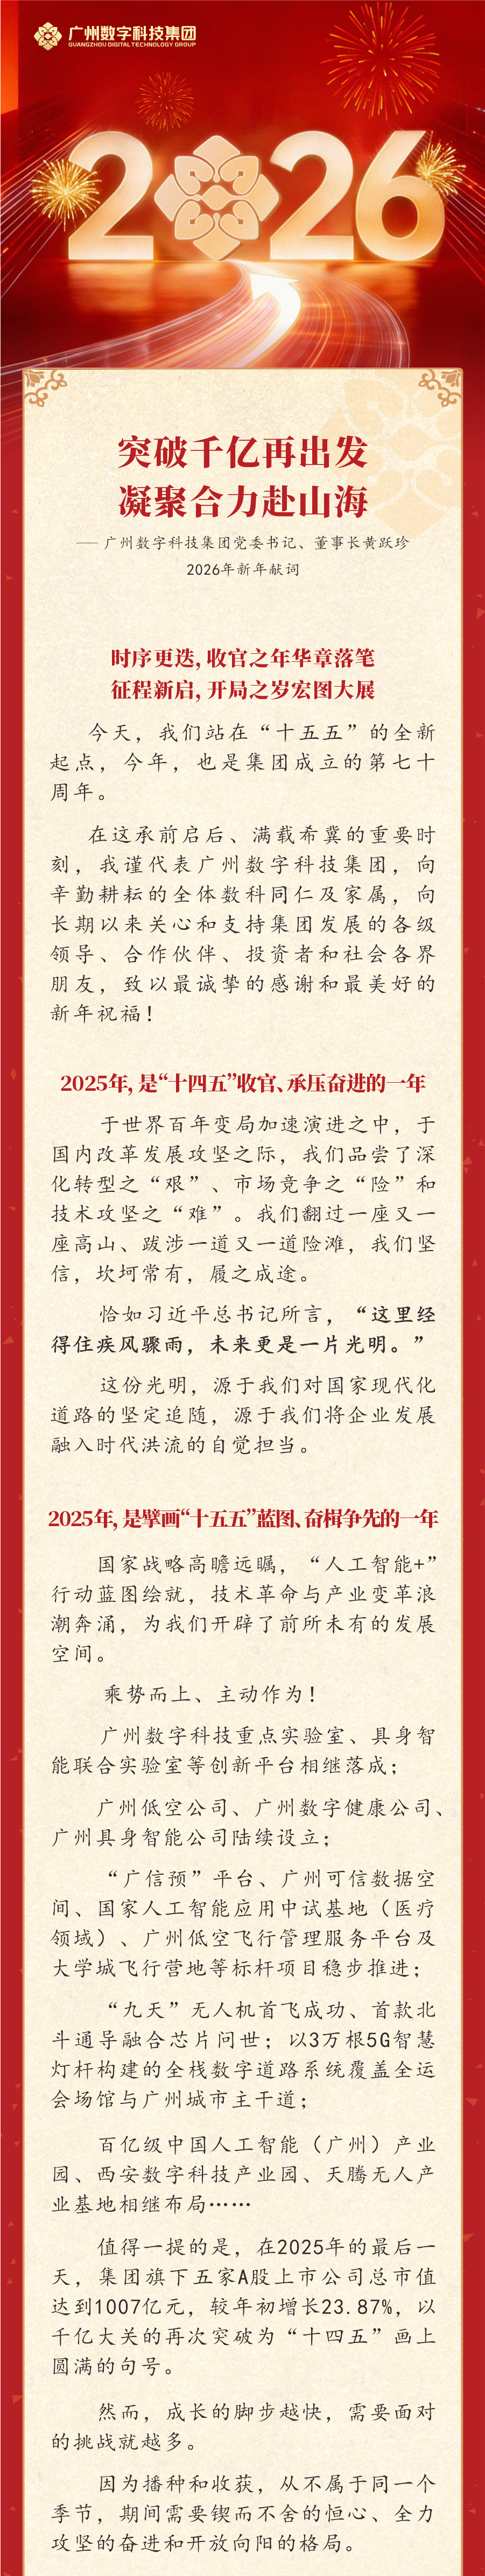 广州数字科技集团
GUANGZHOU DIGITAL TECHNOLOGY GROUP
2026
突破千亿再出发
凝聚合力赴山海
—— 广州数字科技集团党委书记、董事长黄跃珍
2026年新年献词
时序更迭，收官之年华章落笔
征程新启，开局之岁宏图大展
今天，我们站在“十五五”的全新
起点，今年，也是集团成立的第七十
周年。
在这承前启后、满载希冀的重要时
刻，我谨代表广州数字科技集团，向
辛勤耕耘的全体数科同仁及家属，向
长期以来关心和支持集团发展的各级
领导、合作伙伴、投资者和社会各界
朋友，致以最诚挚的感谢和最美好的
新年祝福！
2025年，是“十四五”收官、承压奋进的一年
于世界百年变局加速演进之中，于
国内改革发展攻坚之际，我们品尝了深
化转型之“艰”、市场竞争之“险”和
技术攻坚之“难”。我们翻过一座又一
座高山、跋涉一道又一道险滩，我们坚
信，坎坷常有，履之成途。
恰如习近平总书记所言，“这里经
得住疾风骤雨，未来更是一片光明。”
这份光明，源于我们对国家现代化
道路的坚定追随，源于我们将企业发展
融入时代洪流的自觉担当。
2025年，是擘画“十五五”蓝图、奋楫争先的一年
国家战略高瞻远瞩，“人工智能+”
行动蓝图绘就，技术革命与产业变革浪
潮奔涌，为我们开辟了前所未有的发展
空间。
乘势而上、主动作为！
广州数字科技重点实验室、具身智
能联合实验室等创新平台相继落成；
广州低空公司、广州数字健康公司、
广州具身智能公司陆续设立；
“广信预”平台、广州可信数据空
间、国家人工智能应用中试基地（医疗
领域）、广州低空飞行管理服务平台及
大学城飞行营地等标杆项目稳步推进；
“九天”无人机首飞成功、首款北
斗通导融合芯片问世；以3万根5G智慧
灯杆构建的全栈数字道路系统覆盖全运
会场馆与广州城市主干道；
百亿级中国人工智能（广州）产业
园、西安数字科技产业园、天腾无人产
业基地相继布局……
值得一提的是，在2025年的最后一
天，集团旗下五家A股上市公司总市值
达到1007亿元，较年初增长23.87%，以
千亿大关的再次突破为“十四五”画上
圆满的句号。
然而，成长的脚步越快，需要面对
的挑战就越多。
因为播种和收获，从不属于同一个
季节，期间需要锲而不舍的恒心、全力
攻坚的奋进和开放向阳的格局。